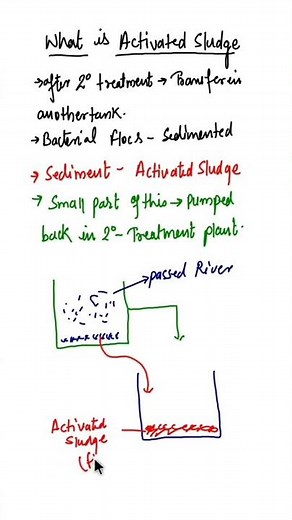 What is Activated Sludge
→ after 2° treatment → Transfer in
another tank.
→ Bacterial Flocs - Sedimented
→ Sediment - Activated Sludge
→ Small part of this → Pumped
back in 2° - Treatment plant.
→ passed River
Activated
Sludge
(f